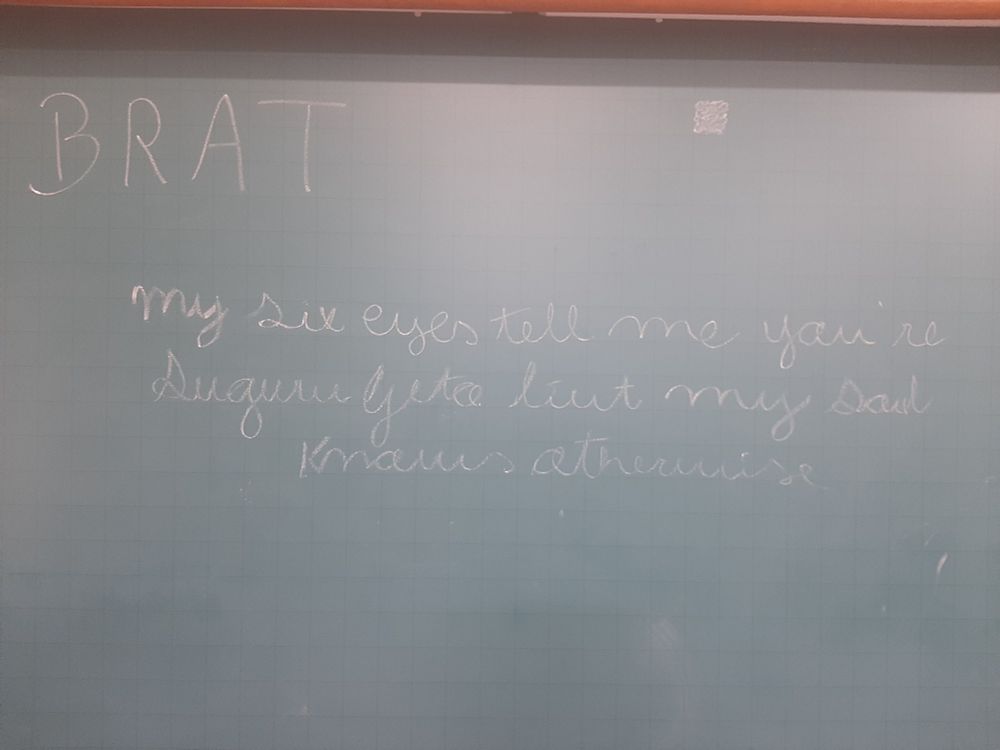 BRAT
my six eyes tell me you're
Suguru Geto but my soul
knows otherwise